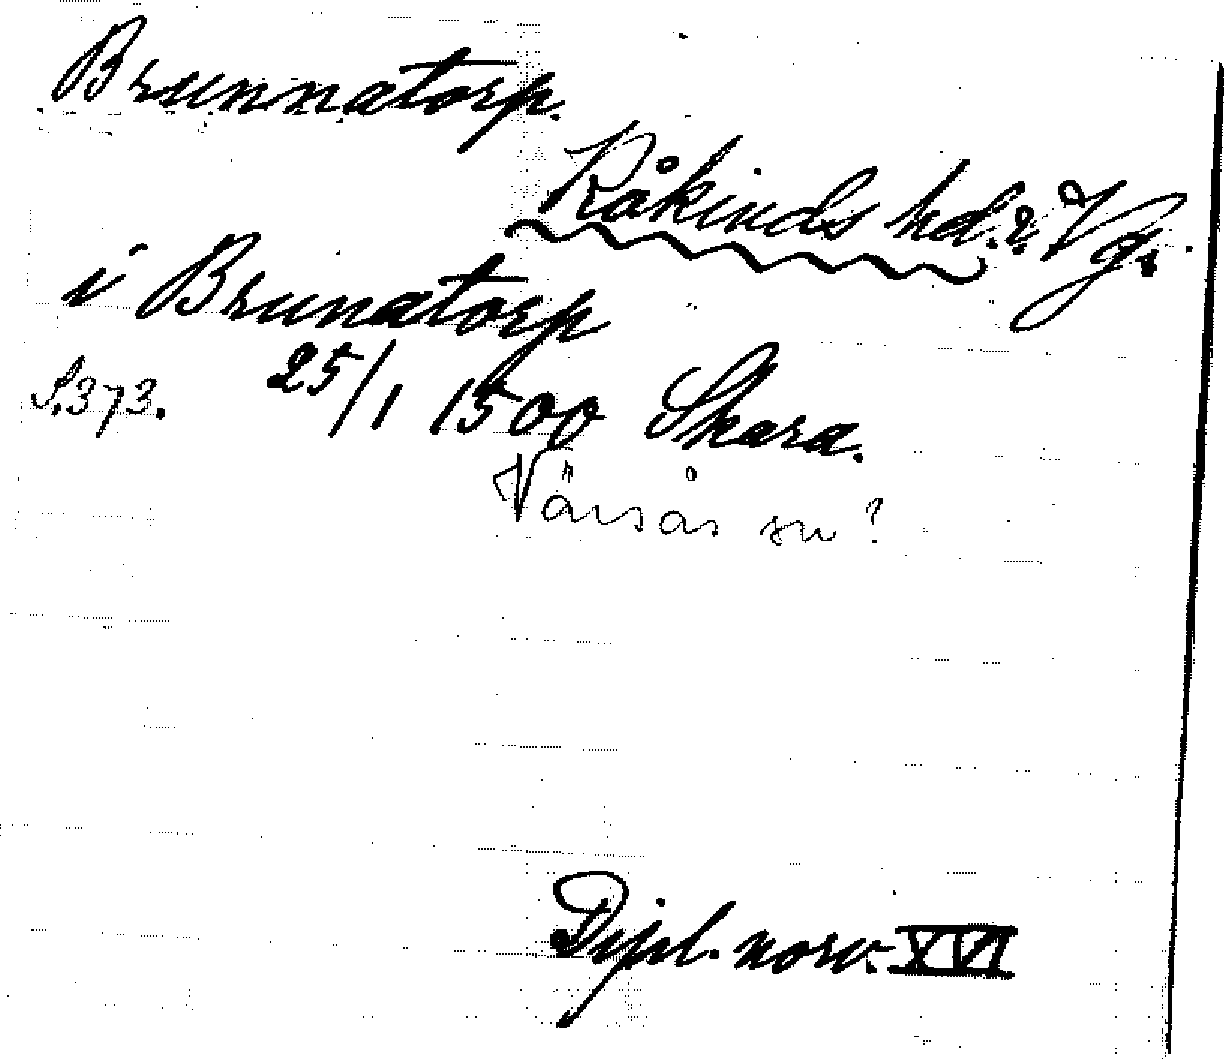 Brunnatorp.
Kåkinds hd. i Vg.
i Brunatorp
S. 373. 25/1 1500 Skara.
Värsås sn?
Dipl. norv. XVI